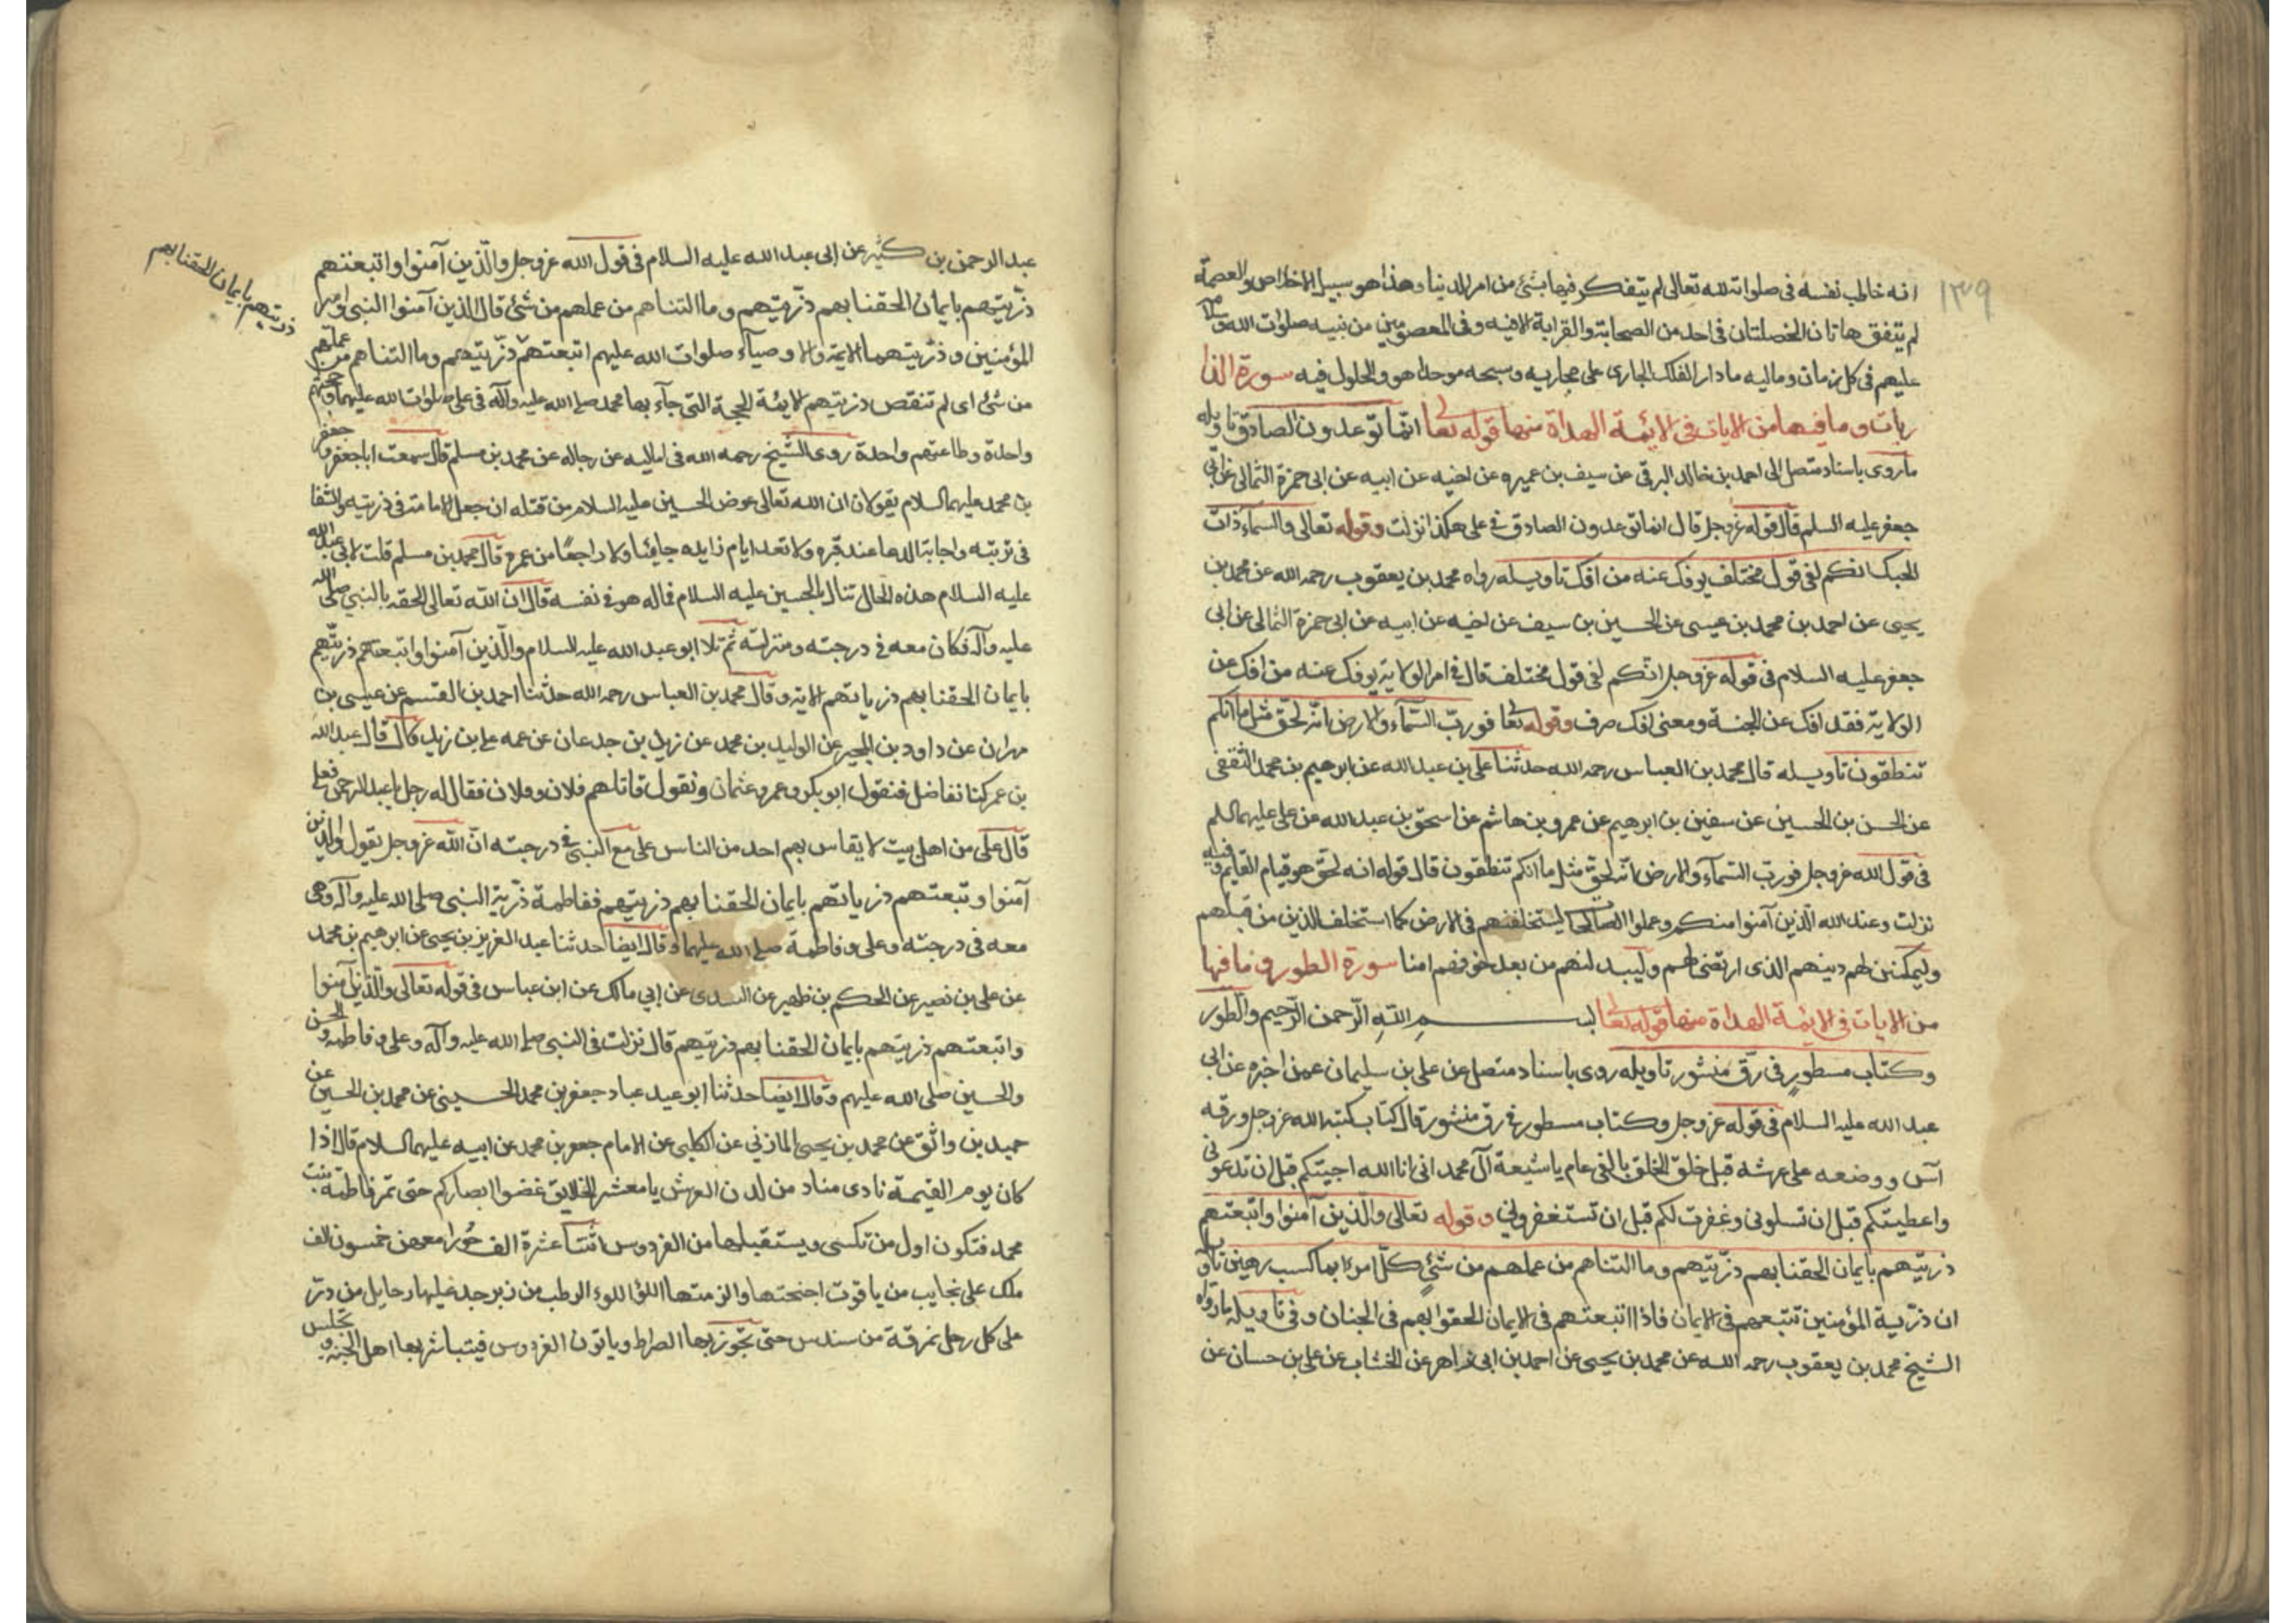 ١٣٩
انه خاطب نفسه فی صلواته لله تعالی لم یتفکر فیها بشئ من امر الدنیا وهذا هو سبیل الاخلاص والعصمة
لم یتفق هاتان الخصلتان فی احد من الصحابة والقرابة الا فیه وفی المعصومین من نبیه صلوات الله
علیهم فی کل زمان ومالیه مادار الفلک الجاری علی مجاریه وسبحه موحدا هو والحلول فیه سورة الذا
ریات وما فیها من الایات فی الائمة الهداة منها قوله تعا انما توعدون الصادق تاویله
ما روی باسناد متصل الی احمد بن خالد البرقی عن سیف بن عمیره عن اخیه عن ابیه عن ابی حمزة الثمالی عن ابی
جعفر علیه السلم قال قوله عزوجل قال انما توعدون الصادق فی علی هکذا نزلت وقوله تعالی والسماء ذات
الحبک انکم لفی قول مختلف یوفک عنه من افک تاویله رواه محمد بن یعقوب رحمه الله عن محمد بن
یحیی عن احمد بن محمد بن عیسی عن الحسین بن سیف عن اخیه عن ابیه عن ابی حمزة الثمالی عن ابی
جعفر علیه السلام فی قوله عزوجل انکم لفی قول مختلف قال فی امر الولایة یوفک عنه من افک عن
الولایة فقد افک عن الجنة ومعنی افک صرف وقوله تعا فورب السمآء والارض انه لحق مثل ما انکم
تنطقون تاویله قال محمد بن العباس رحمه الله حدثنا علی بن عبدالله عن ابرهیم بن محمد الثقفی
عن الحسن بن الحسین عن سفین بن ابرهیم عن عمرو بن هاشم عن اسحق بن عبدالله عن علی علیهما السلم
فی قول الله عزوجل فورب السمآء والارض انه لحق مثل ما انکم تنطقون قال قوله انه لحق هو قیام القایم وفیه
نزلت وعد الله الذین آمنوا منکم وعملوا الصالحات لیستخلفنهم فی الارض کما استخلف الذین من قبلهم
ولیمکنن لهم دینهم الذی ارتضی لهم ولیبدلنهم من بعد خوفهم امنا سورة الطور وما فیها
من الایات فی الائمة الهداة منها قوله تعا بسم الله الرحمن الرحیم والطور
وکتاب مسطور فی رق منشور تاویله روی باسناد متصل عن علی بن سلیمان عمن اخبره عن ابی
عبد الله علیه السلام فی قوله عزوجل وکتاب مسطور فی رق منشور قال کتاب کتبه الله عزوجل ورقه
آس ووضعه علی عرشه قبل خلق الخلق بالفی عام یا شیعة آل محمد انی انا الله اجبتکم قبل ان تدعونی
واعطیتکم قبل ان تسلونی وغفرت لکم قبل ان تستغفرونی وقوله تعالی والذین آمنوا واتبعتهم
ذریتهم بایمان الحقنا بهم ذریتهم وما التناهم من عملهم من شئ کل امرئ بما کسب رهین تاویله
ان ذریة المؤمنین تتبعهم فی الایمان فاذا اتبعتهم فی الایمان الحقوا بهم فی الجنان وفی تاویله ما رواه
الشیخ محمد بن یعقوب رحمه الله عن محمد بن یحیی عن احمد بن ابی زاهر عن الخشاب عن علی بن حسان عن
عبد الرحمن بن کثیر عن ابی عبد الله علیه السلام فی قول الله عزوجل والذین آمنوا واتبعتهم
ذریتهم بایمان الحقنا بهم ذریتهم وما التناهم من عملهم من شئ قال الذین آمنوا النبی وامیر
المؤمنین وذریتهما الائمة والاوصیآء صلوات الله علیهم اتبعتهم ذریتهم وما التناهم من عملهم
ذریتهم بایمان الحقنا بهم
من شئ ای لم تنقص ذریتهم الائمة الحجة التی جآء بها محمد صلی الله علیه وآله فی علی صلوات الله علیهما وحجتهم
واحدة وطاعتهم واحدة روی الشیخ رحمه الله فی امالیه عن رجاله عن محمد بن مسلم قال سمعت ابا جعفر وجعفر
بن محمد علیهما السلام یقولان ان الله تعالی عوض الحسین علیه السلام من قتله ان جعل الامامة فی ذریته والشفا
فی تربته واجابة الدعا عند قبره ولا تعد ایام زایره جائیا ولا راجعا من عمره قال محمد بن مسلم قلت لابی عبدالله
علیه السلام هذه الخال تنال بالحسین علیه السلام فما له هو فی نفسه قال ان الله تعالی الحقه بالنبی صلی الله
علیه وآله فکان معه فی درجته ومنزلته ثم تلا ابو عبد الله علیه السلام والذین آمنوا واتبعتهم ذریتهم
بایمان الحقنا بهم ذریاتهم الایة وقال محمد بن العباس رحمه الله حدثنا احمد بن القسم عن عیسی بن
مهران عن داود بن المجیر عن الولید بن محمد عن زید بن جدعان عن عمه علی بن زید قال قال عبدالله
بن عمر کنا نفاضل فنقول ابو بکر وعمر وعثمان ونقول قاتلهم فلان وفلان فقال له رجل یا عبد الرحمن فعلی
قال علی من اهل بیت لا یقاس بهم احد من الناس علی مع النبی فی درجته ان الله عزوجل یقول والذین
آمنوا وتبعتهم ذریاتهم بایمان الحقنا بهم ذریتهم ففاطمة ذریة النبی صلی الله علیه وآله وهی
معه فی درجته وعلی وفاطمة صلی الله علیهما وقال ایضا حدثنا عبد العزیز بن یحیی عن ابرهیم بن محمد
عن علی بن نصیر عن الحکم بن ظهیر عن السدی عن ابی مالک عن ابن عباس فی قوله تعالی والذین آمنوا
واتبعتهم ذریتهم بایمان الحقنا بهم ذریتهم قال نزلت فی النبی صلی الله علیه وآله وعلی وفاطمة والحسن
والحسین صلی الله علیهم وقال ایضا حدثنا ابو عبد عباد جعفر بن محمد الحسینی عن محمد بن الحسین عن
حمید بن واثق عن محمد بن یحیی المازنی عن الکلبی عن الامام جعفر بن محمد عن ابیه علیهما السلام قال اذا
کان یوم القیمة نادی مناد من لدن العرش یا معشر الخلایق غضوا ابصارکم حتی تمر فاطمة بنت
محمد فتکون اول من تکسی ویستقبلها من الفردوس اثنتا عشرة الف حورا معهن خمسون الف
ملک علی نجایب من یاقوت اجنحتها وازمتها اللؤلؤ الرطب من زبرجد علیها رحایل من در
علی کل رحل نمرقة من سندس حتی تجوز بها الصراط ویاتون الفردوس فیتباشر بها اهل الجنة وتجلس